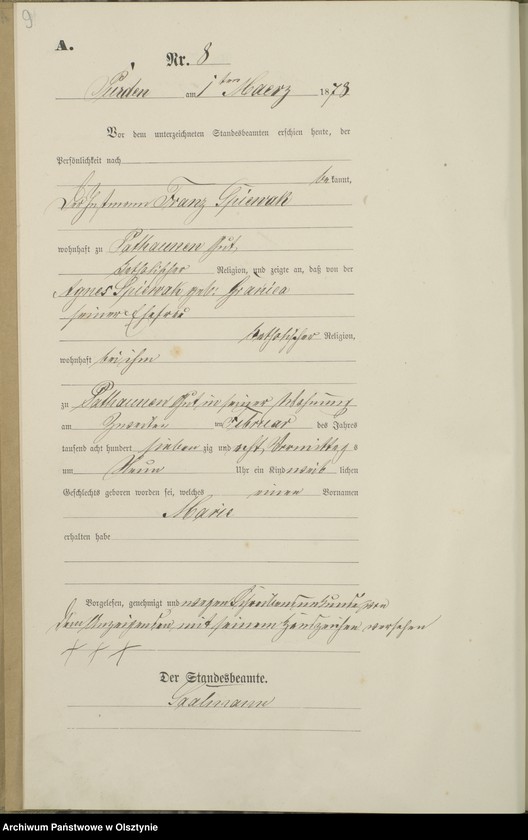 9
A.
Nr. 8
Purden am 1ten Maerz 1878
Vor dem unterzeichneten Standesbeamten erschien heute, der
Persönlichkeit nach
bekannt,
Franz Spiewak
wohnhaft zu Pathaunen Gut
katholischer Religion, und zeigte an, daß von der
Agnes Spiewak geb.
seiner Ehefrau
katholischer Religion,
wohnhaft bei ihm
zu Pathaunen Gut, in seiner Wohnung
am Zweiten Februar des Jahres
tausend acht hundert sieben zig und acht, Vormittag s
um Neun Uhr ein Kind weib lichen
Geschlechts geboren worden sei, welches einen Vornamen
Marie
erhalten habe
Vorgelesen, genehmigt und wegen Schreibensunkunde von
dem Anzeigenden mit seinem Handzeichen versehen
+ + +
Der Standesbeamte.
Saalmann
Archiwum Państwowe w Olsztynie